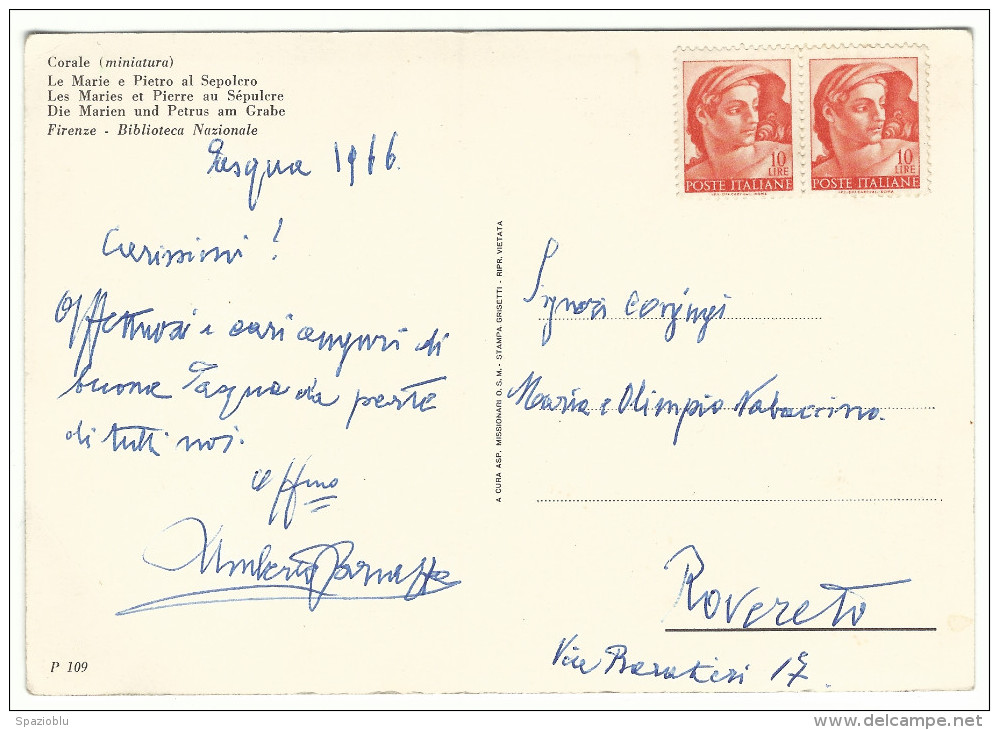 Corale (miniatura)
Le Marie e Pietro al Sepolcro
Les Maries et Pierre au Sépulcre
Die Marien und Petrus am Grabe
Firenze - Biblioteca Nazionale
Pasqua 1966.
Carissimi!
Affettuosi e cari auguri di
buona Pasqua da parte
di tutti noi.
aff.mo
Umberto
P 109
A CURA ASP. MISSIONARI O. S. M. - STAMPA GRISETTI - RIPR. VIETATA
10
LIRE
POSTE ITALIANE
10
LIRE
POSTE ITALIANE
Signori Coniugi
Maria e Olimpio
Rovereto
Via Baratieri 17
Spazioblu
delcampe.net